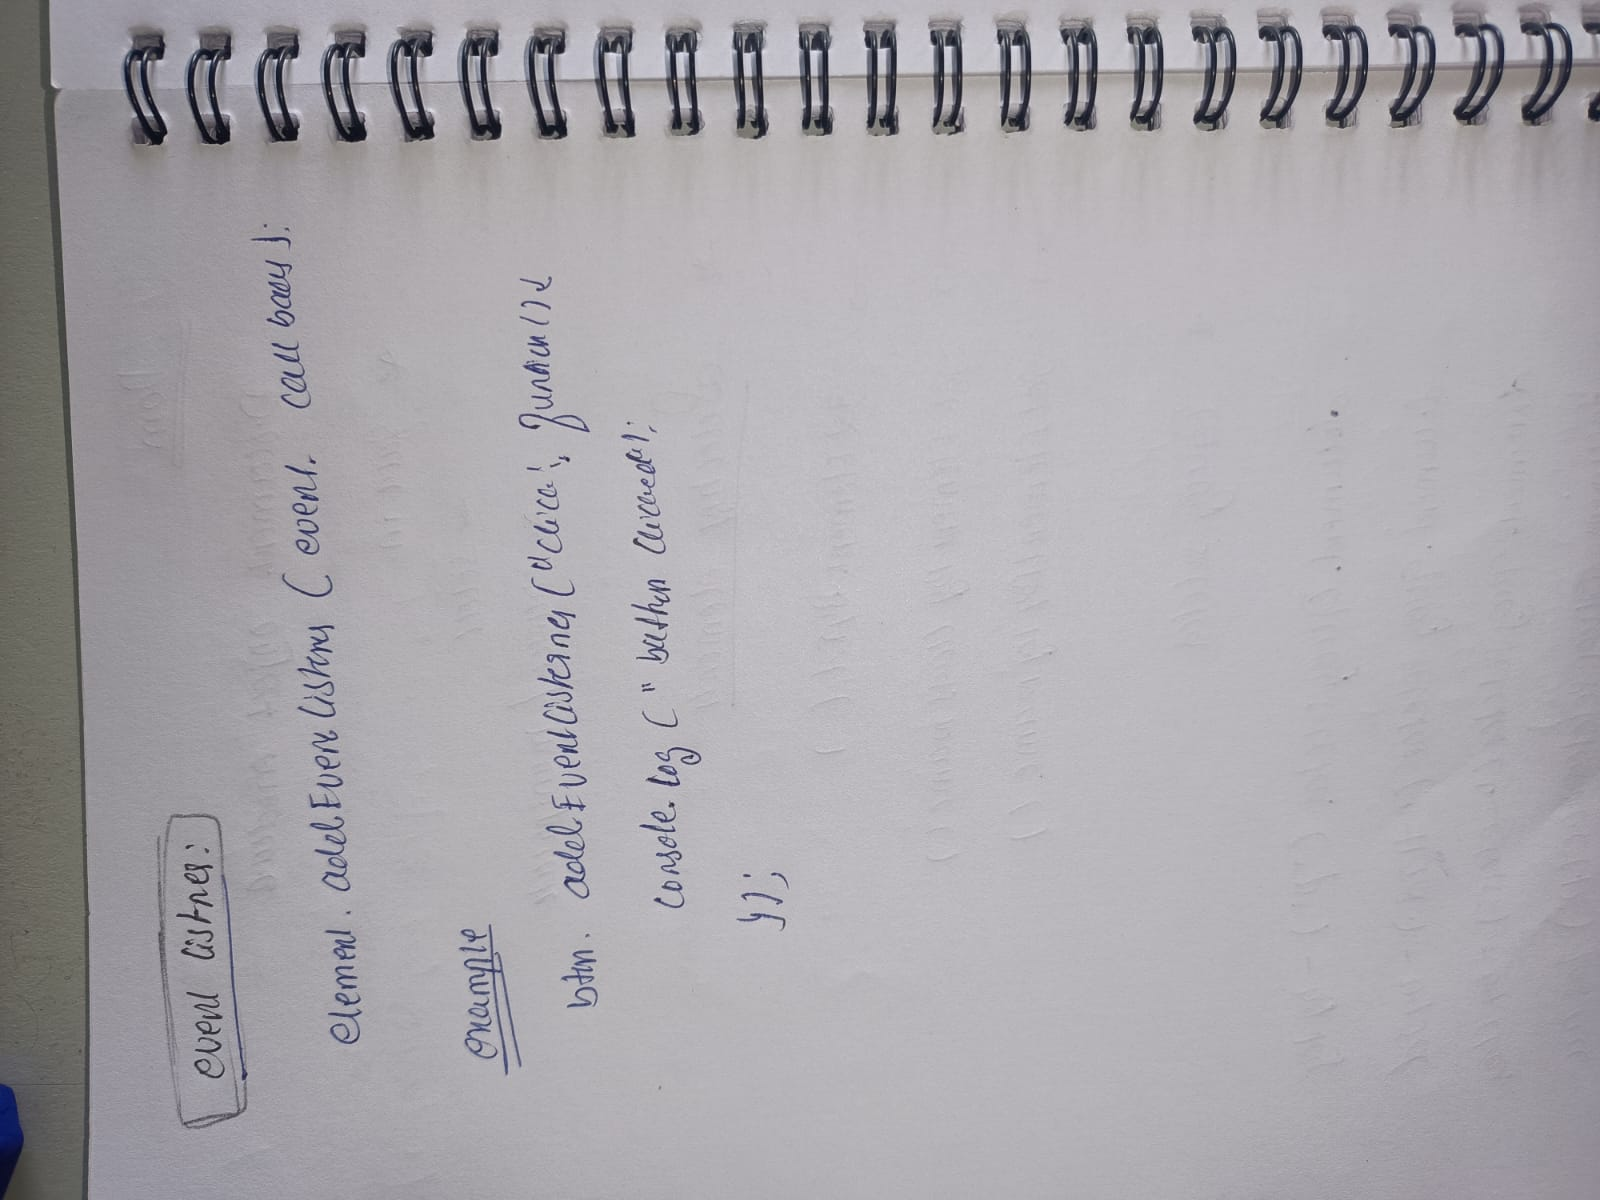 event listner:
element. addEventlistner ( event. call back );
example
btn. addEventlisterner ("click", function(){
console.log ( " button clicked");
});